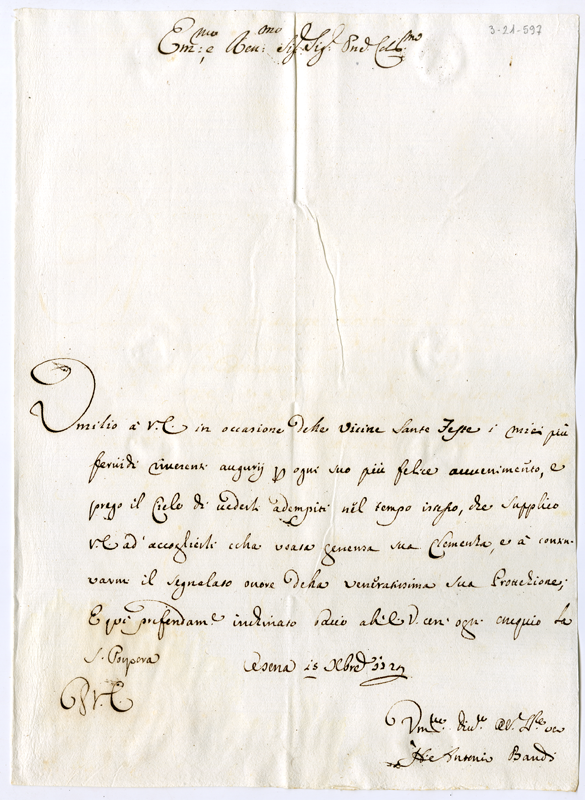 3-21-597
Em:mo e Reu:mo Sig: Sig: Pne Col:mo
Umilio à V.E. in occasione delle vicine Sante Feste i miei più
feruidi riuerenti augurij p ogni suo più felice auuenimento, e
prego il Cielo di uederli adempiti nel tempo istesso, che supplico
V.E. ad' accoglierli colla usata generosa sua Clemenza, e à conti-
uarmi il segnalato onore della veneratissima sua Protezione;
E qui profondam.e inchinato bacio all'E.V. con ogni ossequio la
S. Porpora Cesena 15 Xbre
V.E
Um.mo Diu.mo
Antonio Bandi